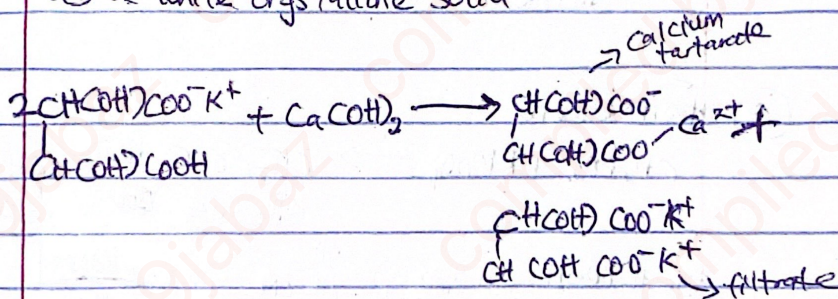 white crystalline solid
Calcium
tartarate
2CH(OH)COO⁻K⁺ + Ca(OH)₂ ⟶ CH(OH)COO⁻
CH(OH)COOH CH(OH)COO Ca²⁺ +
CH(OH) COO⁻K⁺
CH COH COO⁻K⁺
filtrate